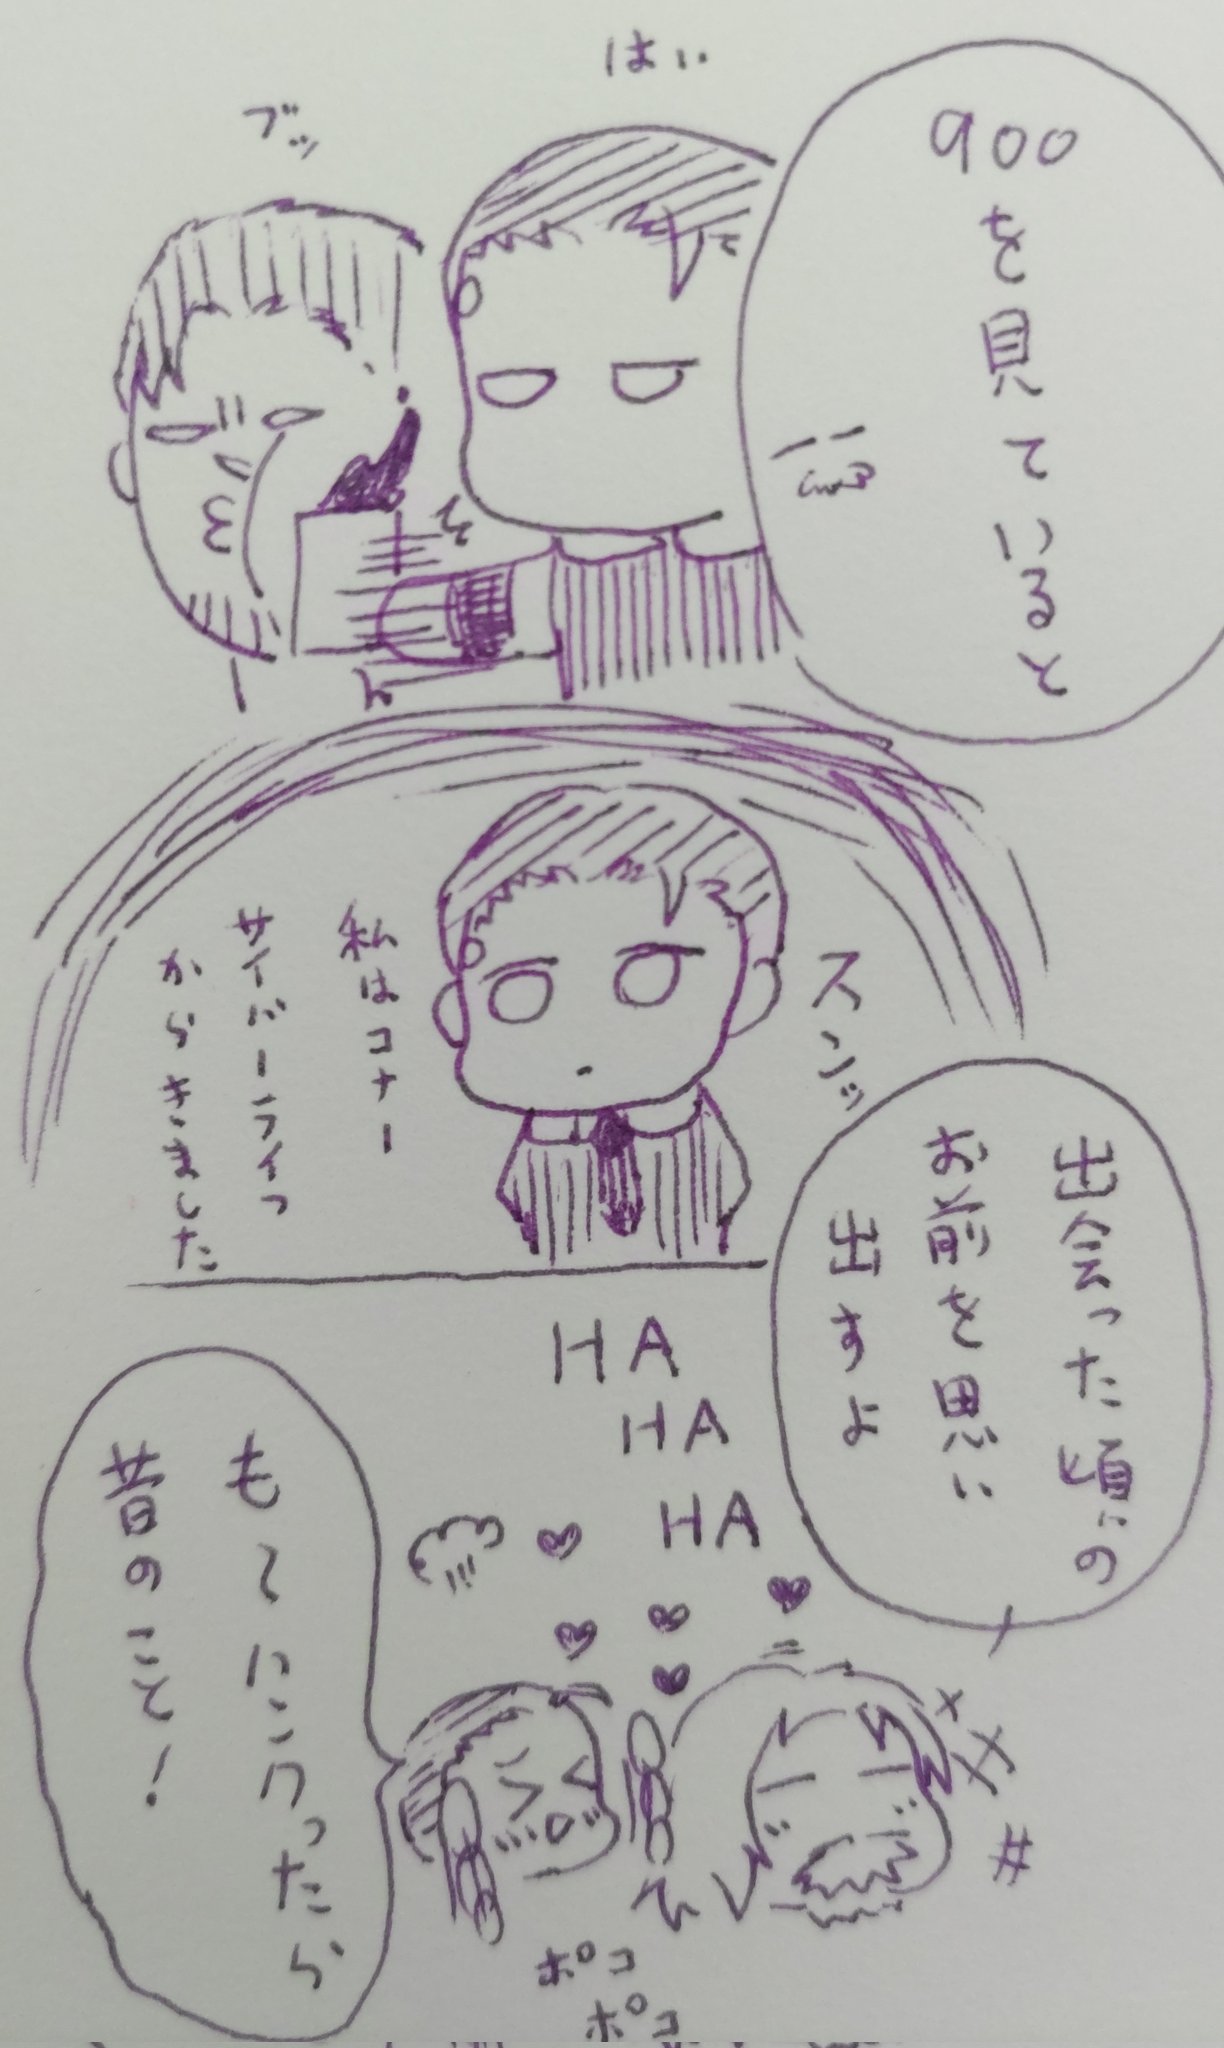 はい
ブッ
900
を見ていると
スンッ
私はコナー
サイバーライフ
からきました
出会った頃の
お前を思い
出すよ
HA
HA
HA
昔のこと!
ポコ
ポコ